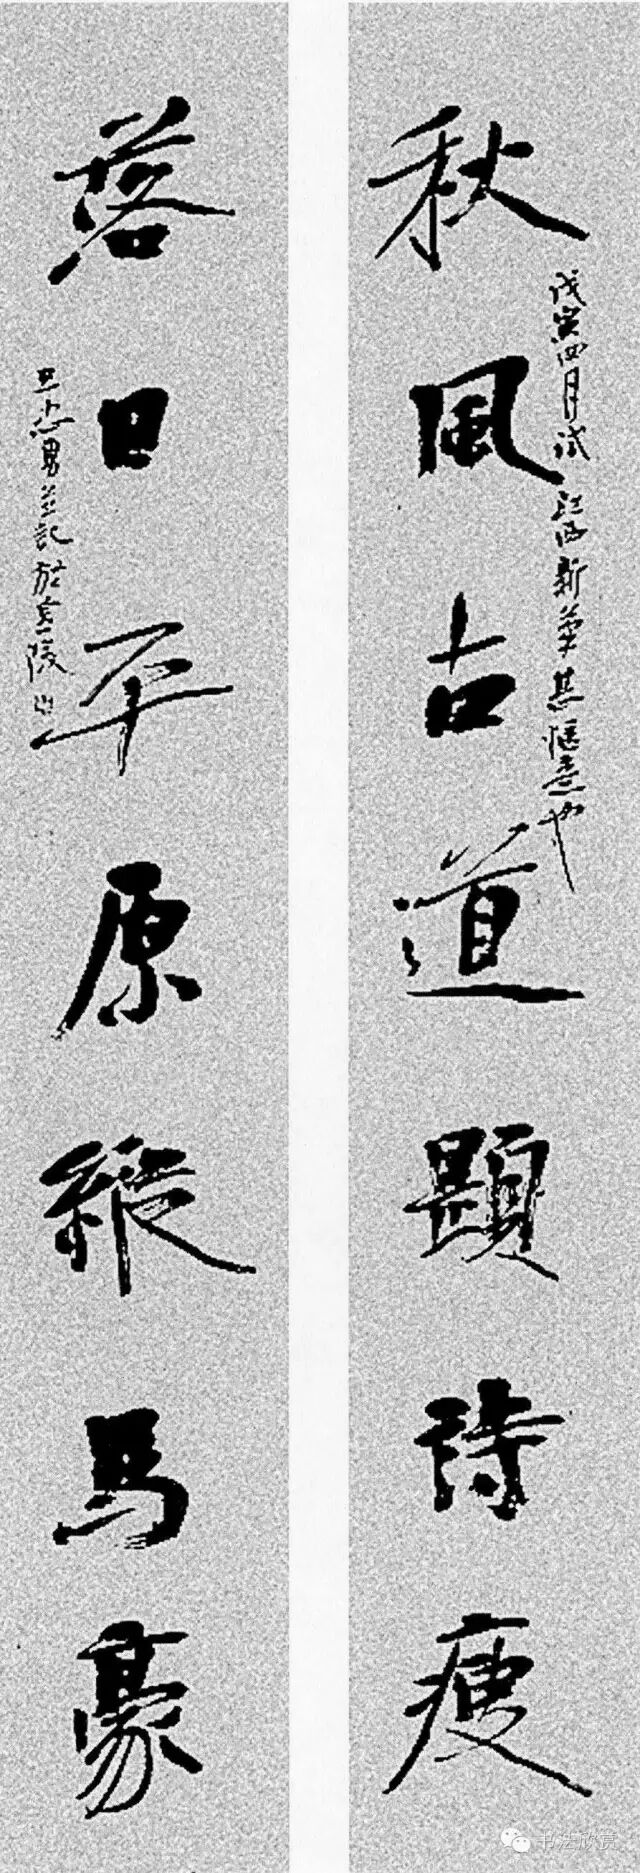 秋風古道題詩瘦
戊寅四月試江西新筆其愜意也
落日平原縱馬豪
並記於金陵
书法欣赏